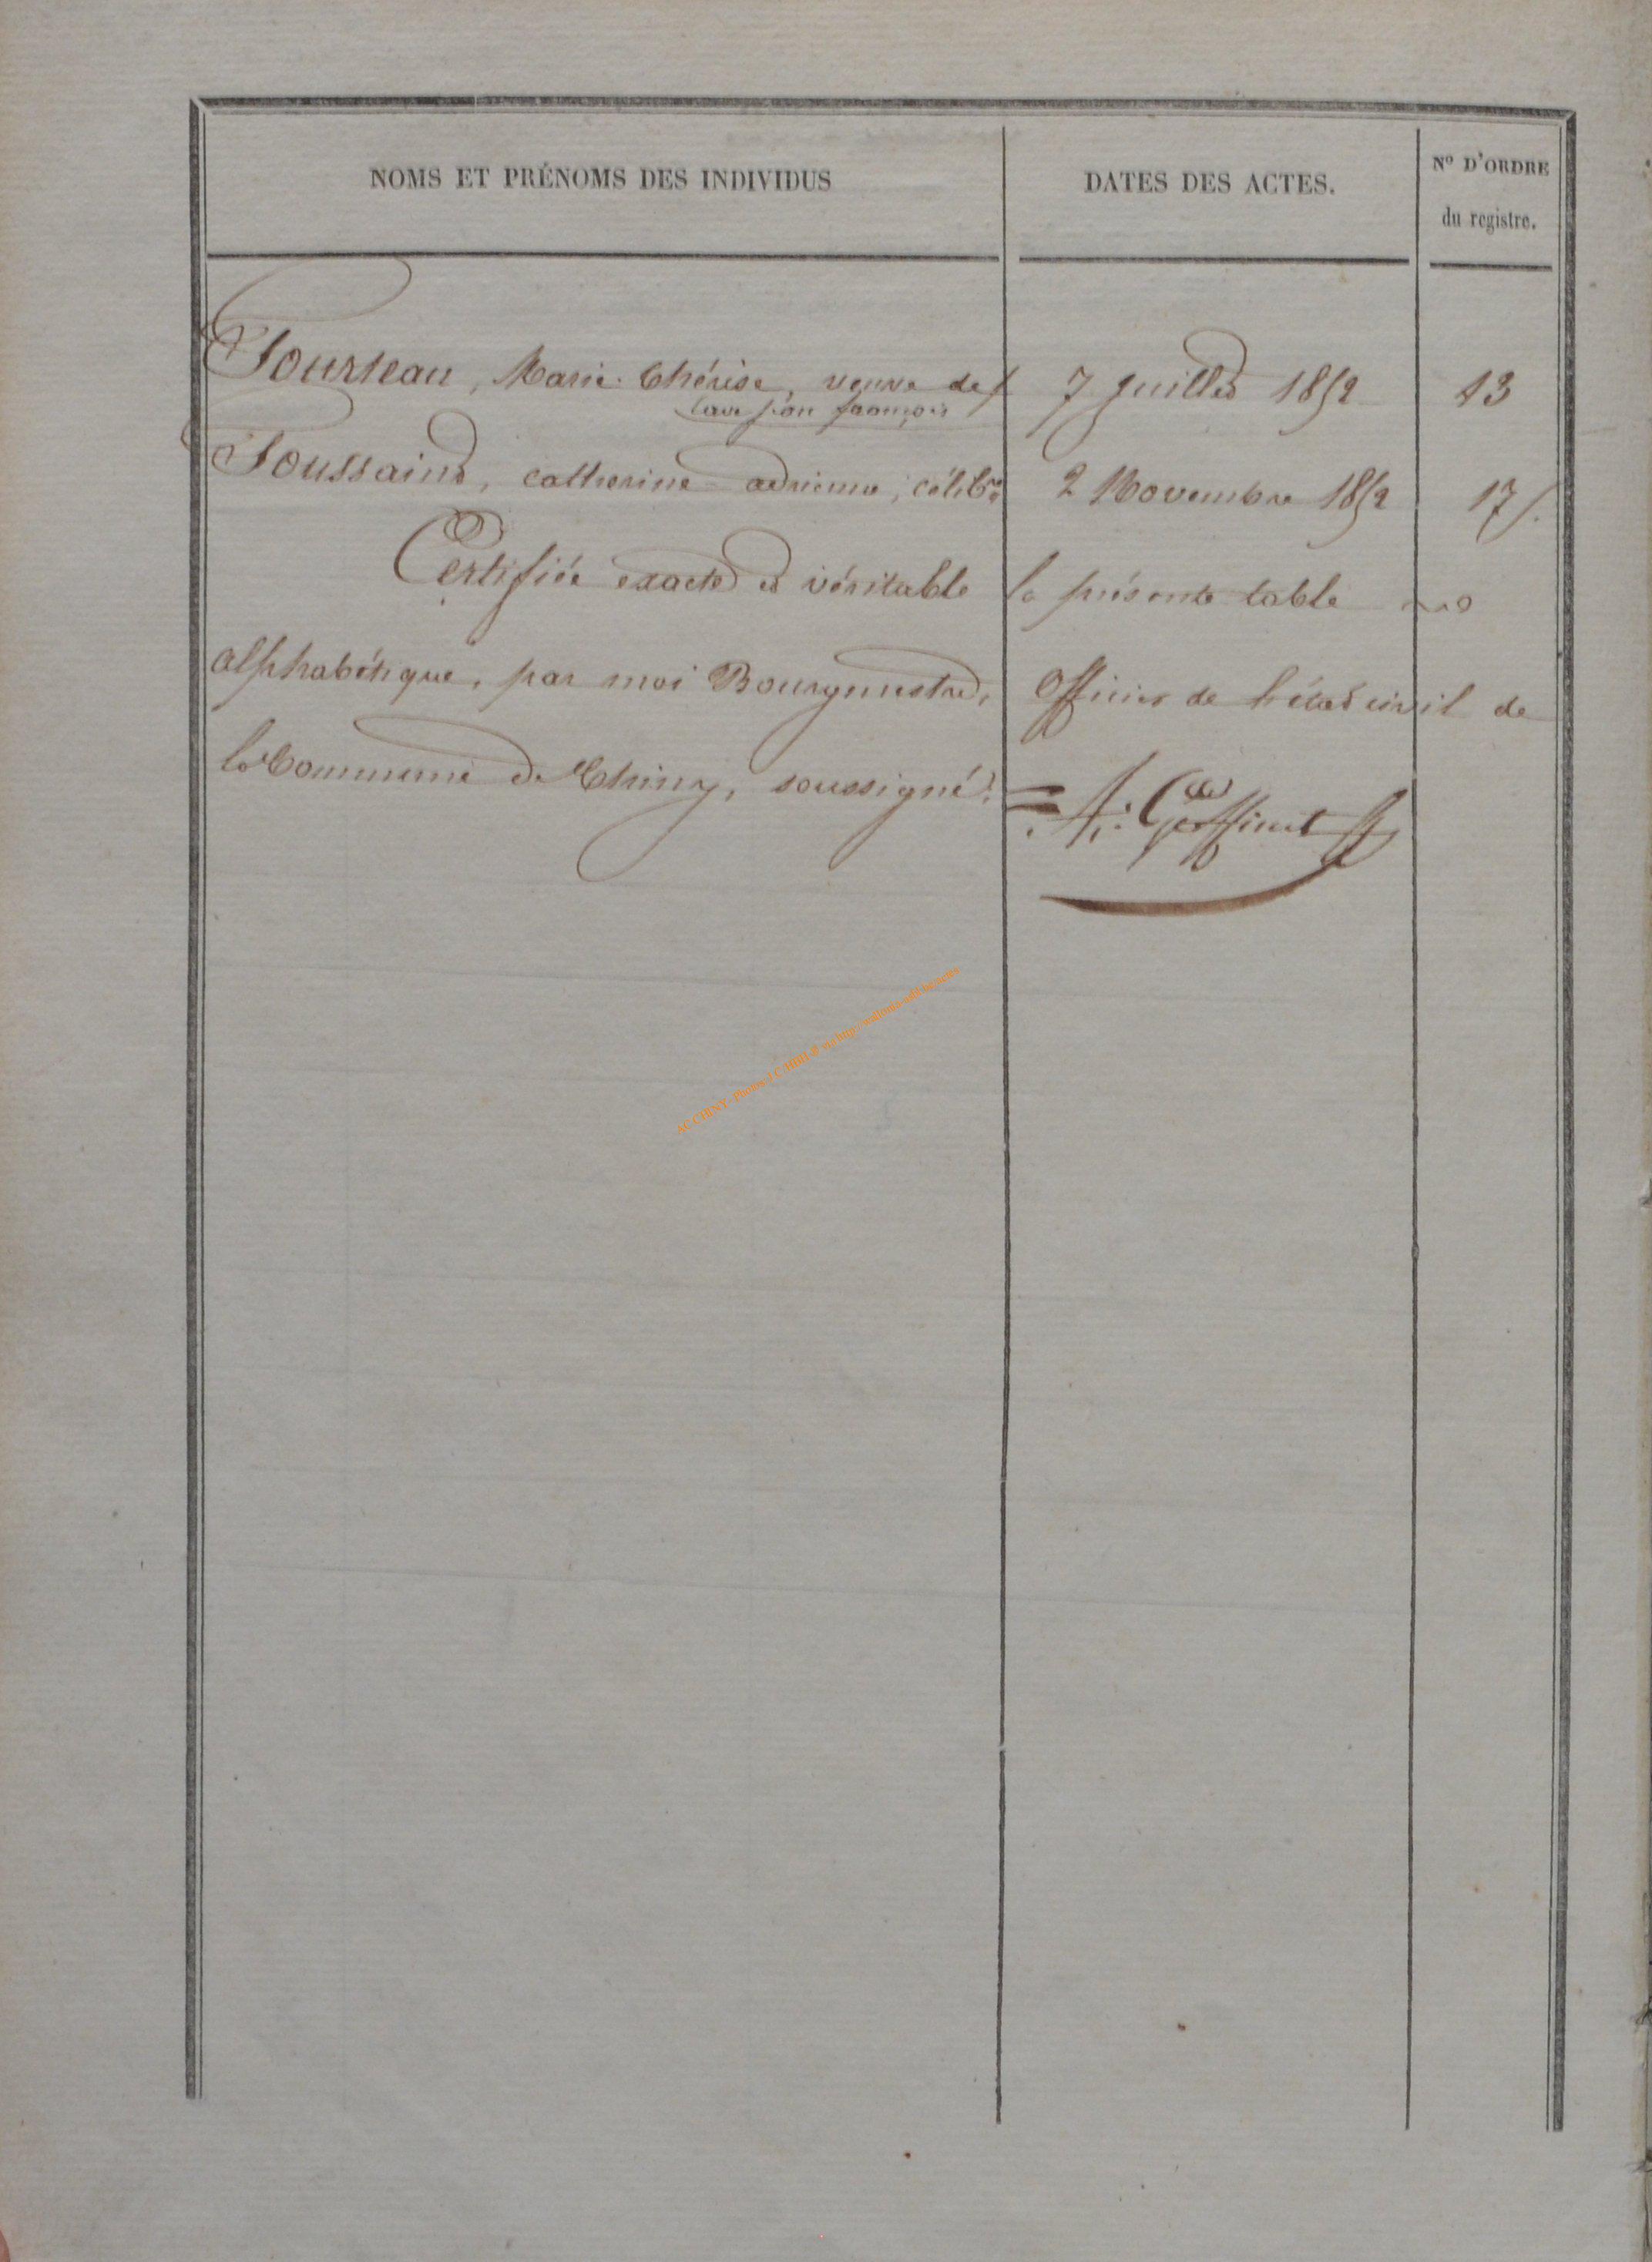 NOMS ET PRÉNOMS DES INDIVIDUS
DATES DES ACTES.
Nº D'ORDRE
du registre.
Tourteau, Marie-Thérèse, veuve de 7 Juillet 1852 13
françois
Toussaint, catherine adrienne, célibre 2 Novembre 1852 17.
Certifiée exacte et véritable la présente table
alphabétique, par moi Bourgmestre, Officier de l'état civil de
la Commune de Chiny, soussigné.